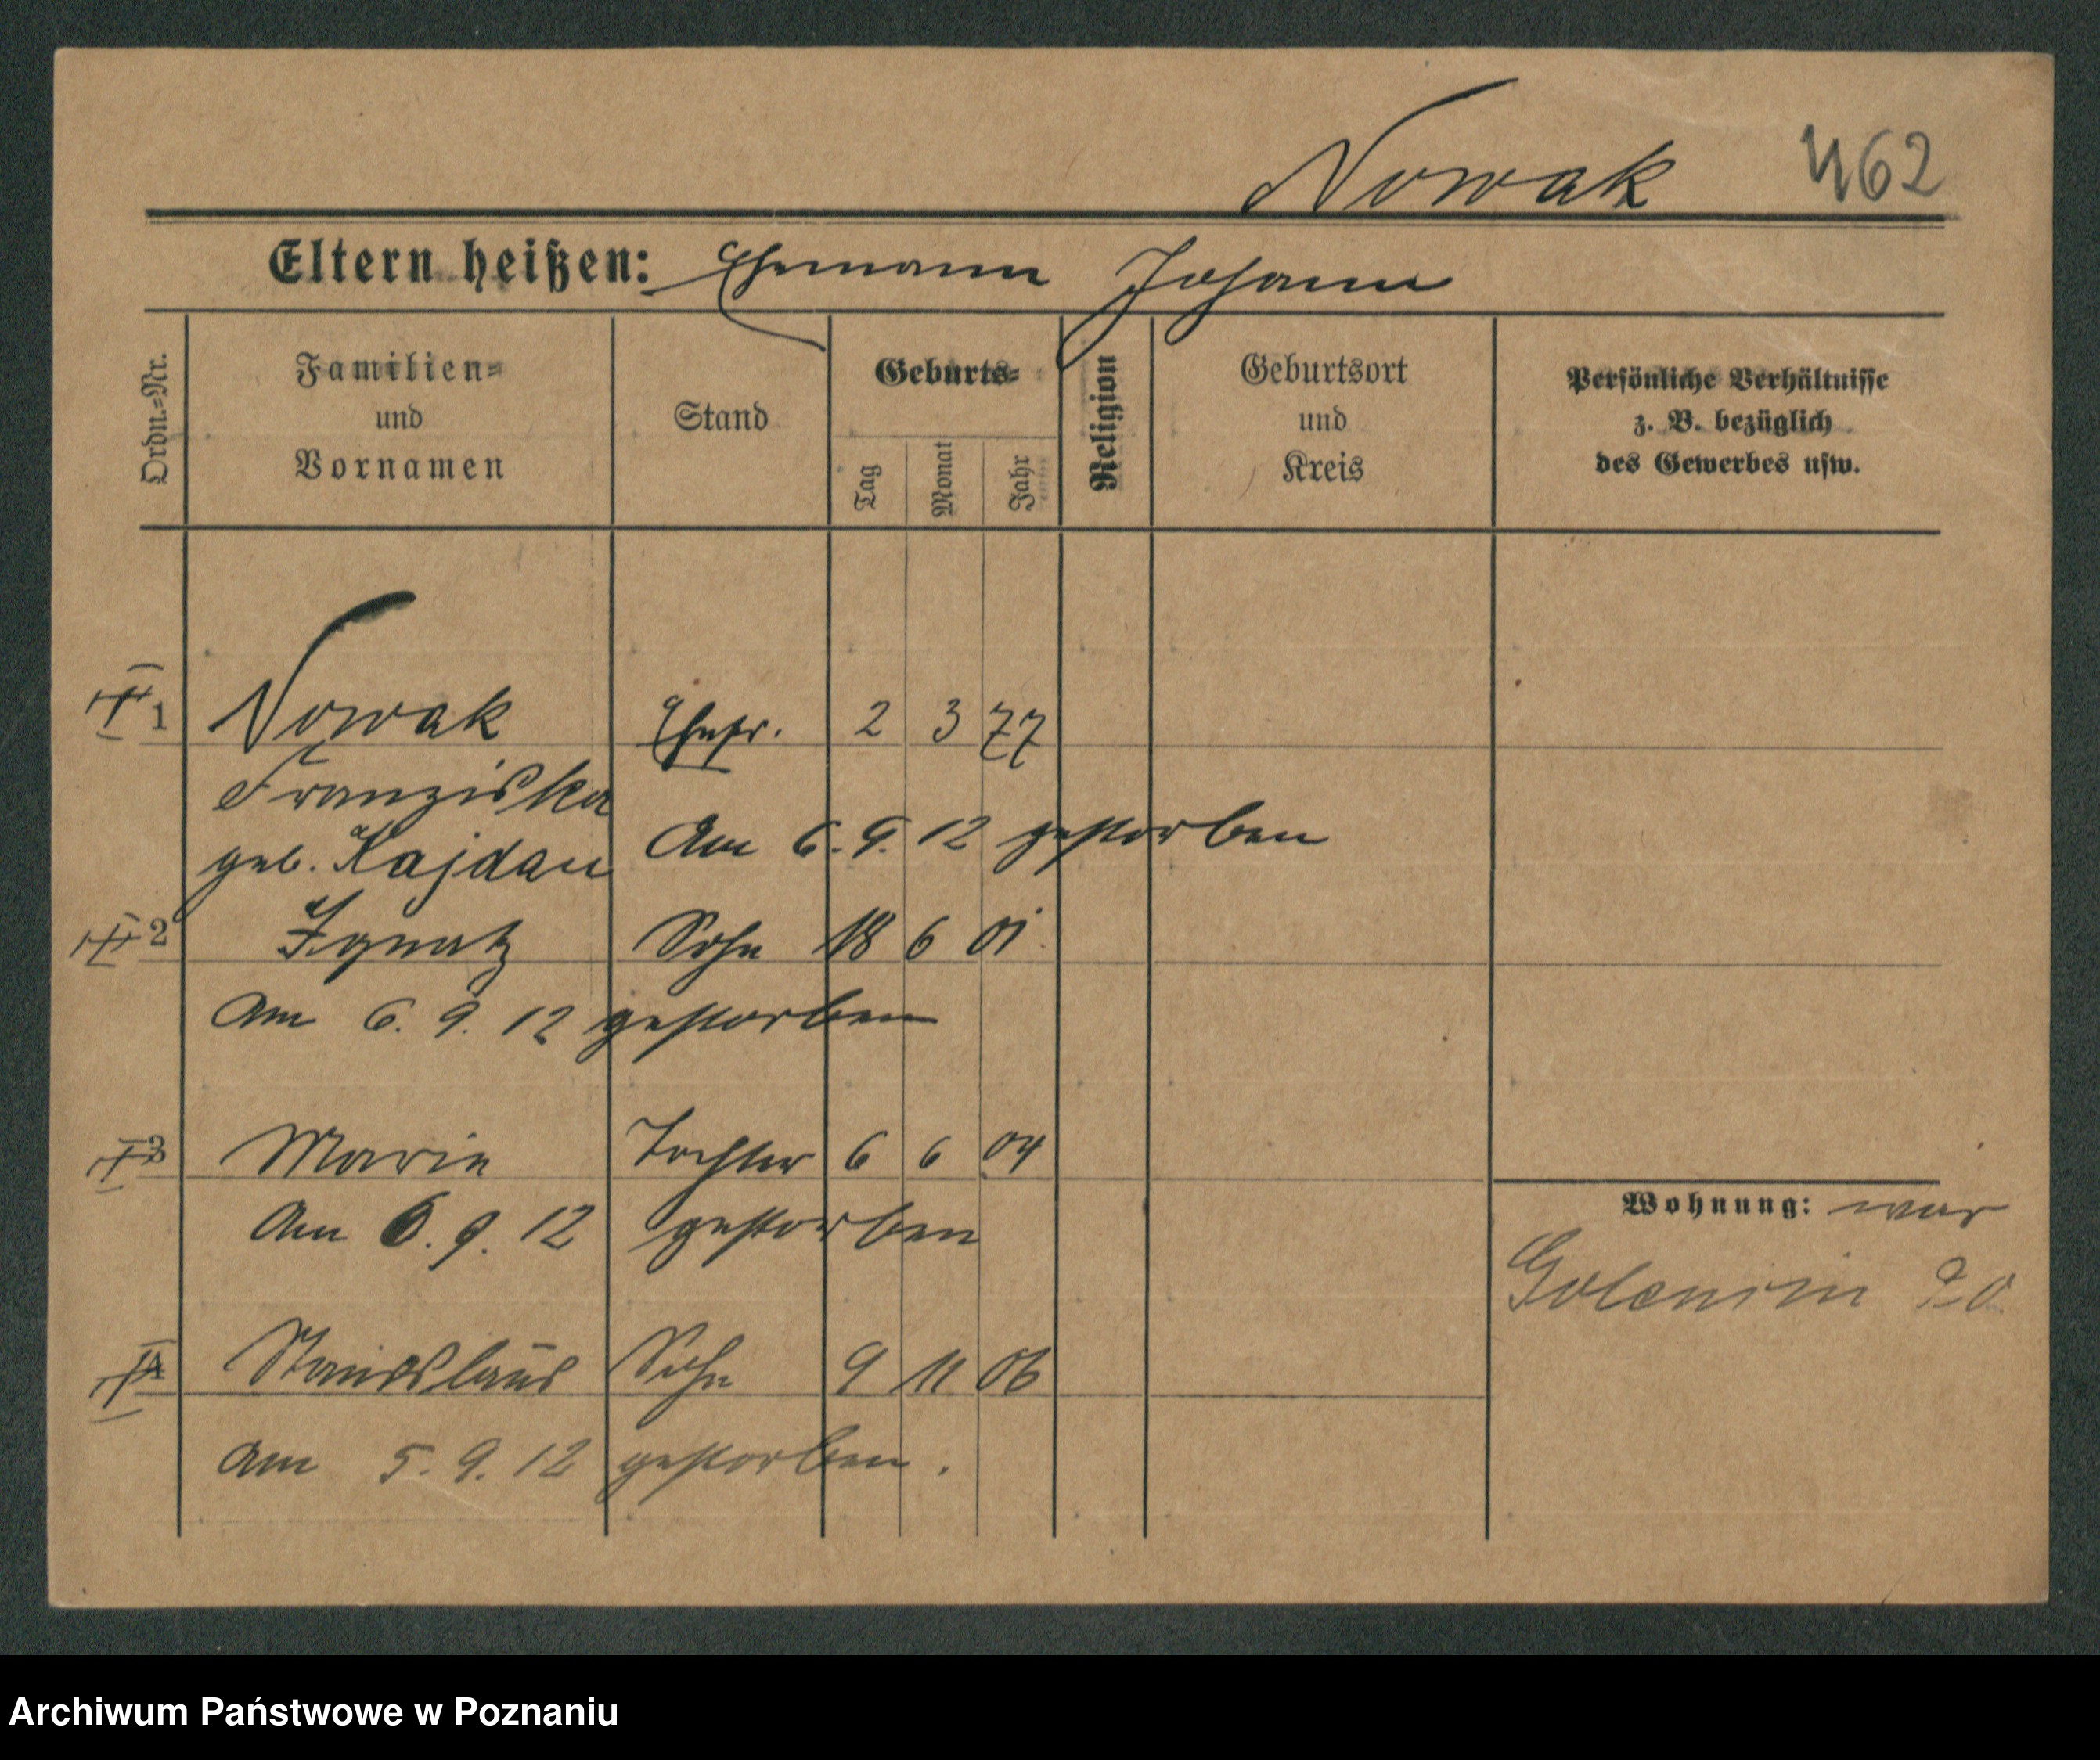 Nowak 462
Eltern heißen: Ehemann Johann
Ordn.-Nr.
Familien-
und
Vornamen
Stand
Geburts-
Tag
Monat
Jahr
Religion
Geburtsort
und
Kreis
Persönliche Verhältnisse
z. B. bezüglich
des Gewerbes usw.
1 Nowak Ehefr. 2 3 77
Franziska
geb. Kajdan Am 6. 9. 12 gestorben
2 Ignatz Sohn 18 6 01
Am 6. 9. 12 gestorben
3 Marie Tochter 6 6 04
Am 6. 9. 12 gestorben
Wohnung: war
Golenvin
4 Stanislaus Sohn 9 11 06
Am 5. 9. 12 gestorben.
Archiwum Państwowe w Poznaniu